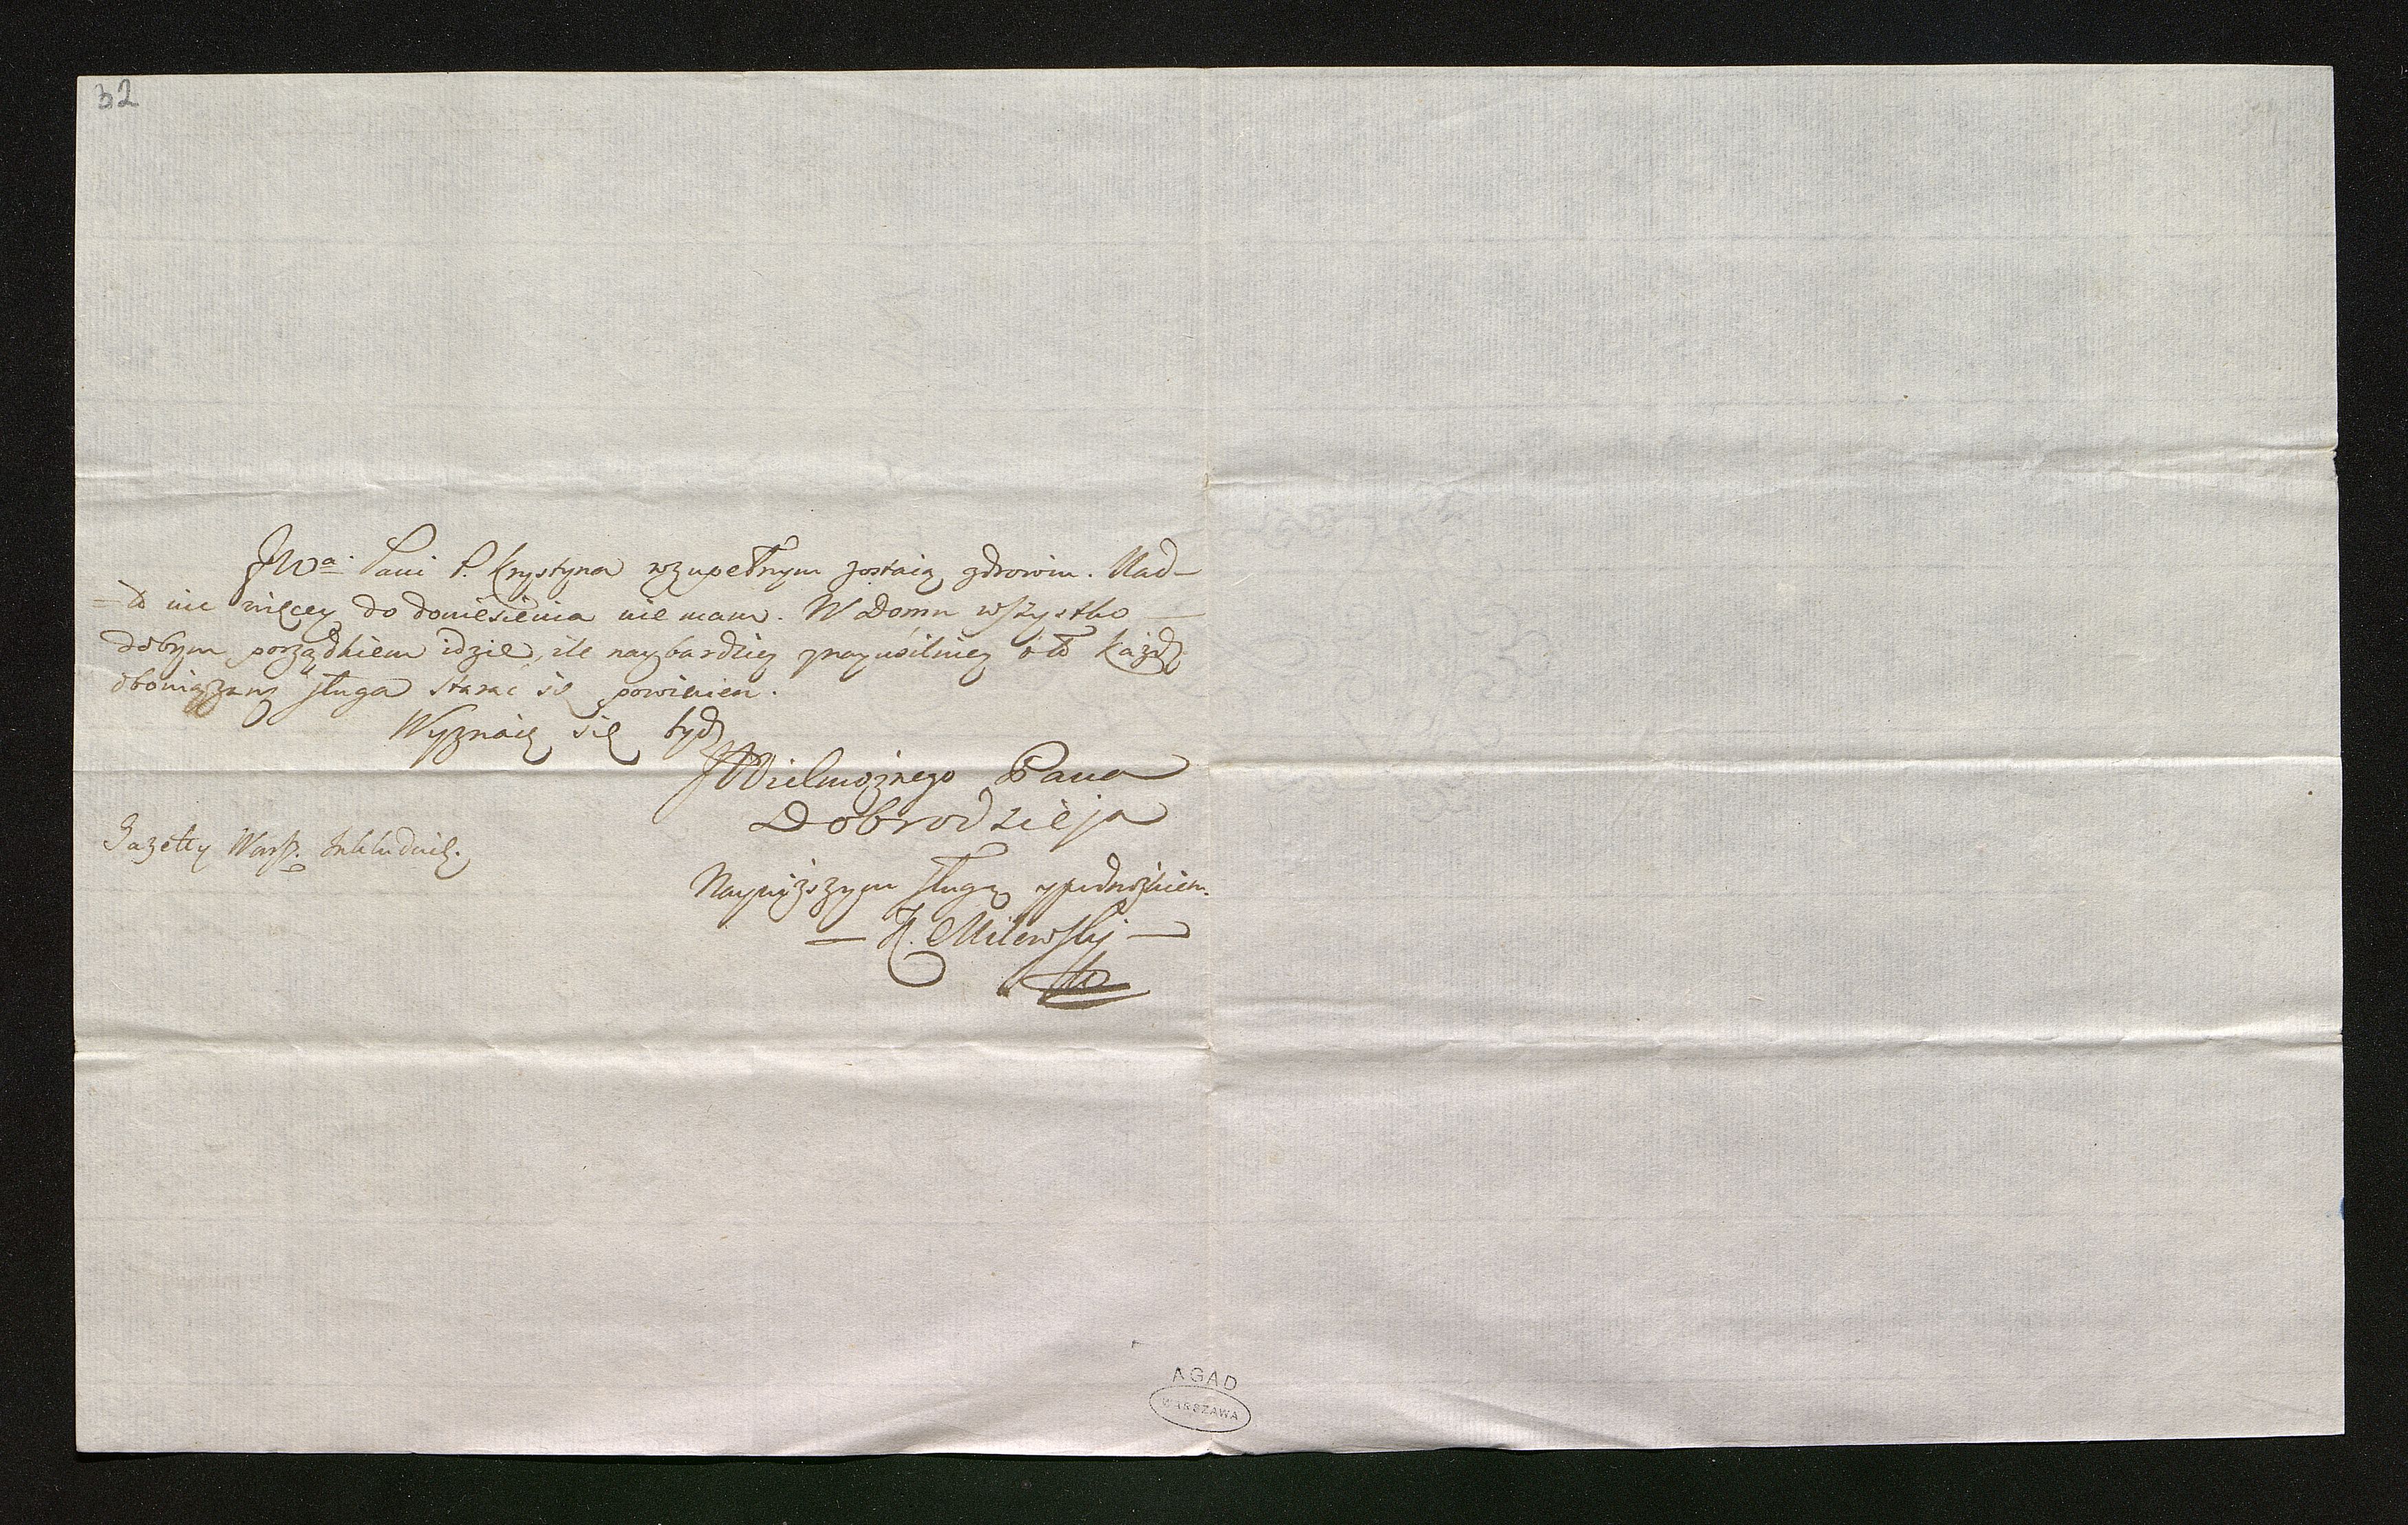 32
JWa. Pani P. Krystyna w zupełnym zostaią zdrowiu. Nad-
=to nic więcey do doniesienia nie mam. W Domu wszystko —
dobrym porządkiem idzie, ile naybardziey y nayusilniey o to każdy
obowiązany sługa starać się powinien.
Wyznaię się bydź
JWielmożnego Pana
Dobrodzieja
Gazetty Warsz. Inkluduię.
Nayniższym sługą y podnóżkiem.
— H. Milewskij —
AGAD
WARSZAWA